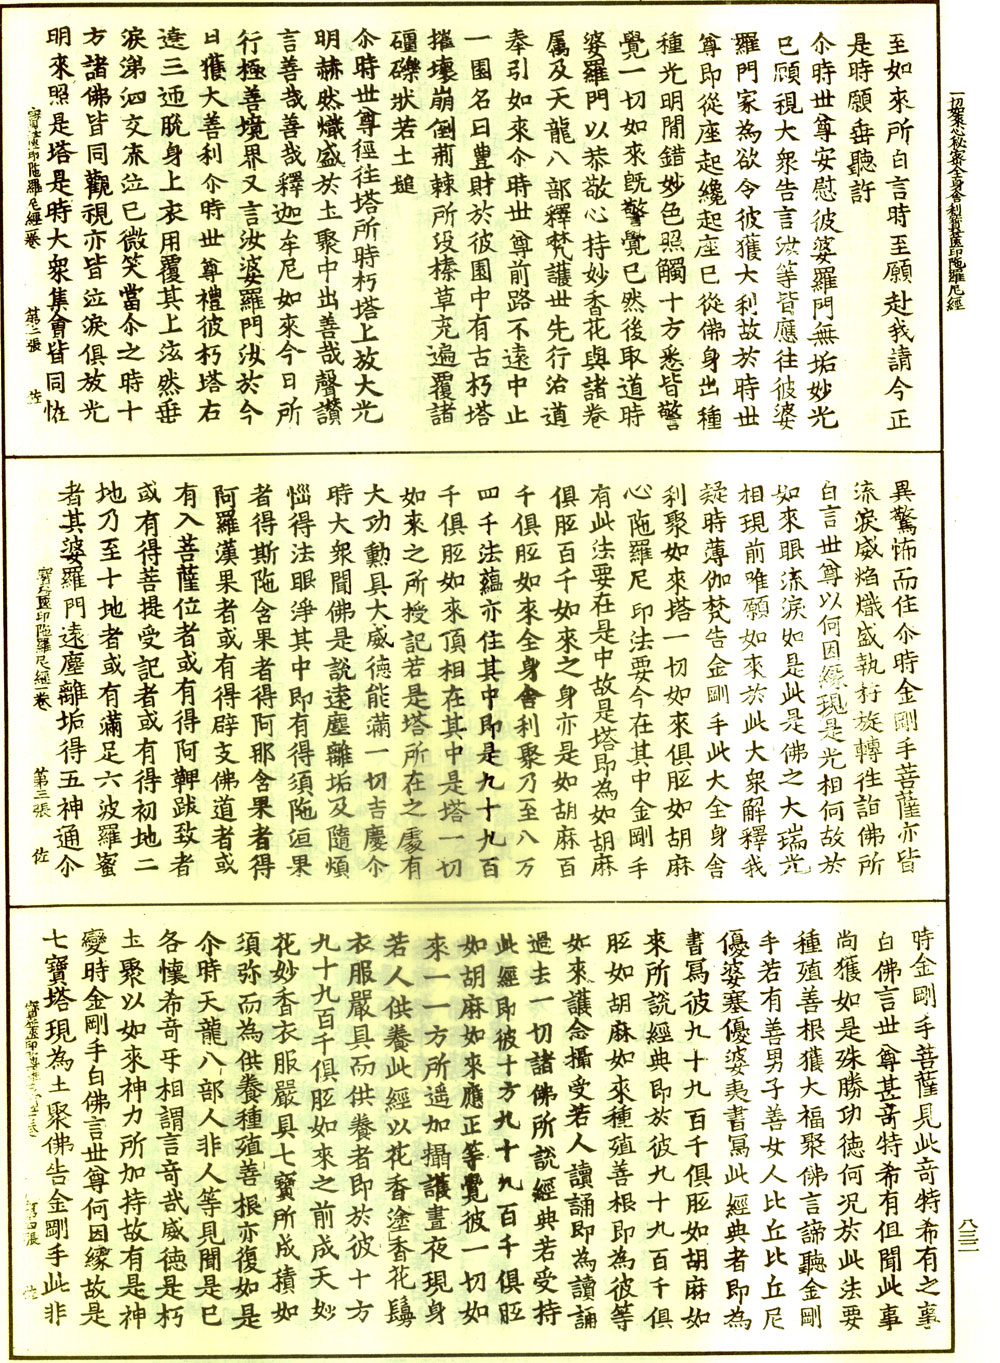 一切如來心秘密全身舍利寶篋印陁羅尼經
至如來所白言時至願赴我請今正
是時願垂聽許
尒時世尊安慰彼婆羅門無垢妙光
已顧視大衆告言汝等皆應往彼婆
羅門家為欲令彼獲大利故於時世
尊即從座起纔起座已從佛身出種
種光明間錯妙色照觸十方悉皆警
覺一切如來旣警覺已然後取道時
婆羅門以恭敬心持妙香花與諸眷
属及天龍八部釋梵護世先行治道
奉引如來尒時世尊前路不遠中止
一園名曰豊財於彼園中有古朽塔
摧壞崩倒荊棘所没榛草充遍覆諸
礓礫狀若土塠
尒時世尊徑往塔所時朽塔上放大光
明赫然熾盛於土聚中出善哉聲讚
言善哉善哉釋迦牟尼如來今日所
行極善境界又言汝婆羅門汝於今
日獲大善利尒時世尊禮彼朽塔右
遶三迊脫身上衣用覆其上泫然垂
淚涕泗交流泣已微笑當尒之時十
方諸佛皆同觀視亦皆泣淚俱放光
明來照是塔是時大衆集會皆同恠
寶篋印陁羅尼經一卷 第二張 佐
異驚怖而住尒時金剛手菩薩亦皆
流淚威焰熾盛執杵旋轉往詣佛所
白言世尊以何因緣現是光相何故於
如來眼流淚如是此是佛之大瑞光
相現前唯願如來於此大衆解釋我
疑時薄伽梵告金剛手此大全身舍
利聚如來塔一切如來俱胝如胡麻
心陁羅尼印法要今在其中金剛手
有此法要在是中故是塔即為如胡麻
俱胝百千如來之身亦是如胡麻百
千俱胝如來全身舍利聚乃至八万
四千法蘊亦住其中即是九十九百
千俱胝如來頂相在其中是塔一切
如來之所授記若是塔所在之處有
大功勳具大威德能滿一切吉慶尒
時大衆聞佛是說遠塵離垢及隨煩
惱得法眼淨其中即有得須陁洹果
者得斯陁含果者得阿那含果者得
阿羅漢果者或有得辟支佛道者或
有入菩薩位者或有得阿鞞跋致者
或有得菩提受記者或有得初地二
地乃至十地者或有滿足六波羅蜜
者其婆羅門遠塵離垢得五神通尒
寶篋印陁羅尼經一卷 第三張 佐
時金剛手菩薩見此奇特希有之事
白佛言世尊甚奇特希有但聞此事
尚獲如是殊勝功德何況於此法要
種殖善根獲大福聚佛言諦聽金剛
手若有善男子善女人比丘比丘尼
優婆塞優婆夷書寫此經典者即為
書寫彼九十九百千俱胝如胡麻如
來所說經典即於彼九十九百千俱
胝如胡麻如來種殖善根即為彼等
如來護念攝受若人讀誦即為讀誦
過去一切諸佛所說經典若受持
此經即彼十方九十九百千俱胝
如胡麻如來應正等覺彼一切如
來一一方所遥加攝護晝夜現身
若人供養此經以花香塗香花鬘
衣服嚴具而供養者即於彼十方
九十九百千俱胝如來之前成天妙
花妙香衣服嚴具七寶所成積如
須弥而為供養種殖善根亦復如是
尒時天龍八部人非人等見聞是已
各懷希奇㸦相謂言奇哉威德是朽
土聚以如來神力所加持故有是神
變時金剛手白佛言世尊何因緣故是
七寶塔現為土聚佛告金剛手此非
第四張 佐
八三二